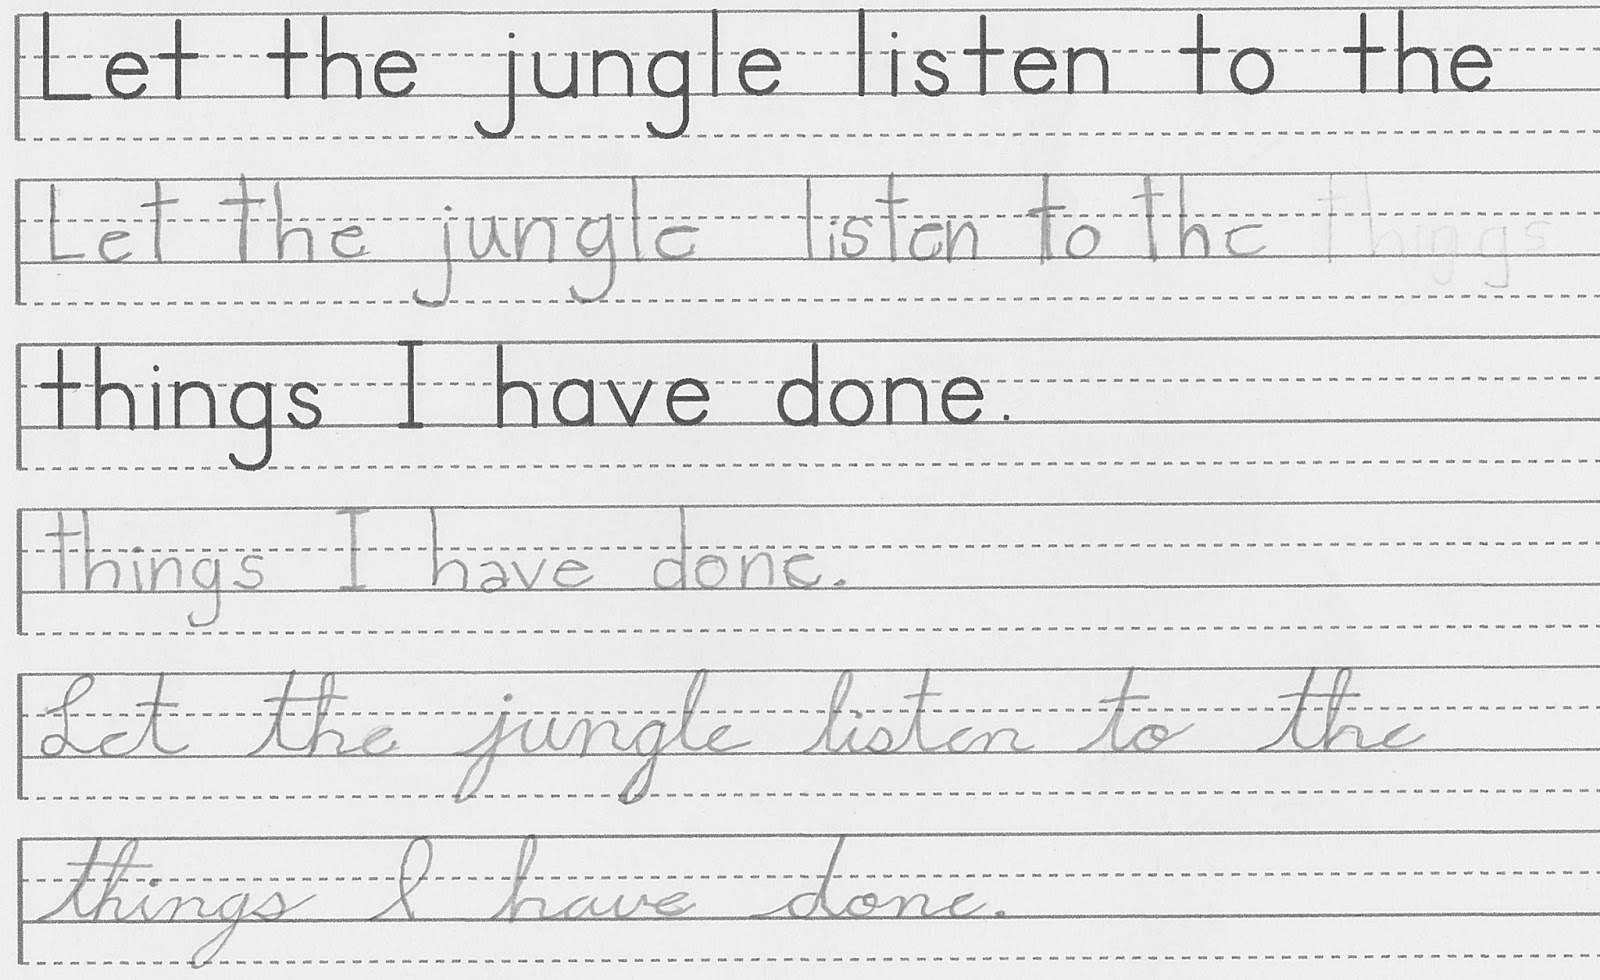 Let the jungle listen to the
Let the jungle listen to the things
things I have done.
things I have done.
Let the jungle listen to the
things I have done.